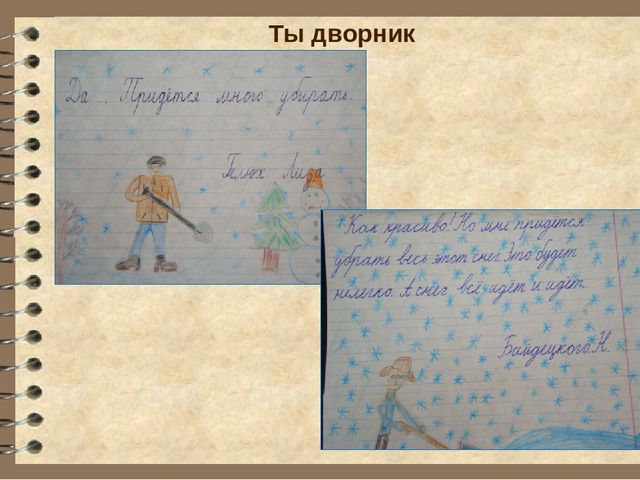 Ты дворник
Да... Придётся много убирать.
Гелюх Лиза
Как красиво! Но мне придется
убрать весь этот снег. Это будет
нелегко. А снег всё идёт и идёт.
Байдецкого Н.